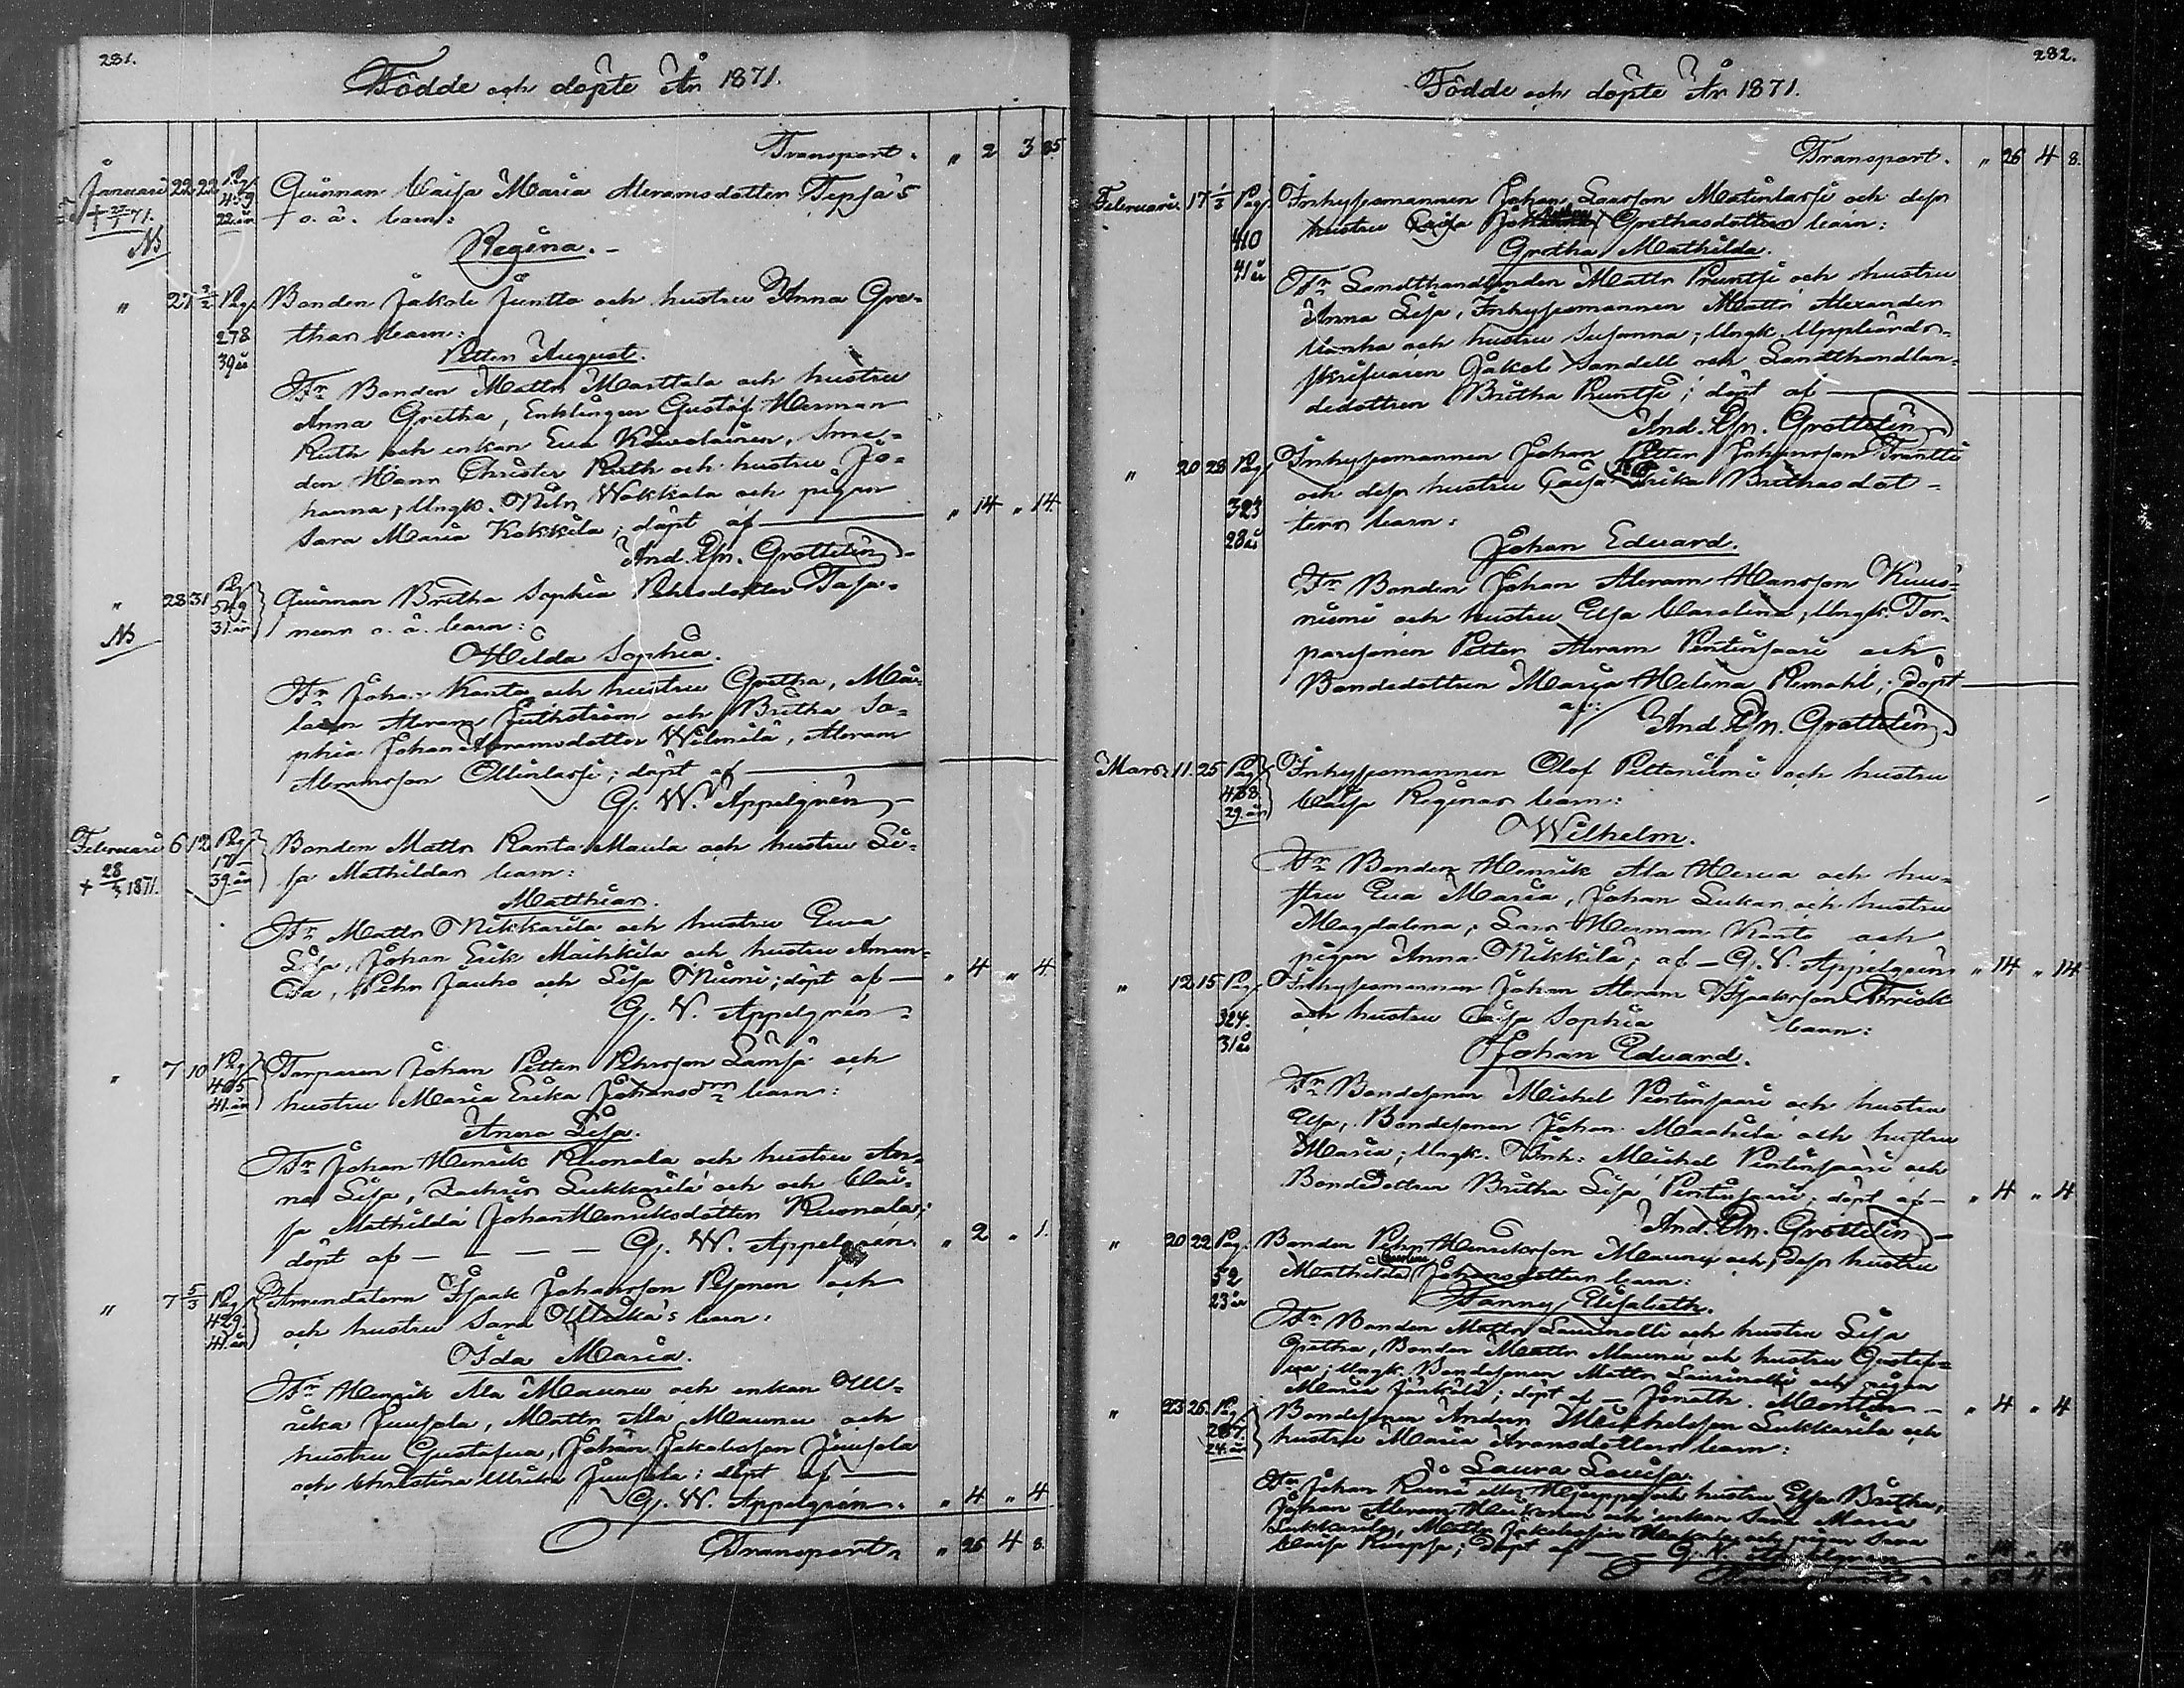 281.
Födde och döpte År 1871.
Transport. " 2 3 35.
Januari 22 22 Pag. Qvinnan Caisa Maria Abramsdotter Tepsa's
+ 27/1 71. 459 22 år o. ä. barn:
NB
Regina.
" 21 2/2 Pag. Bonden Jakob Juntto och hustru Anna Gre-
278 thas barn:
39 år Petter August.
Fr Bonden Matts Marttala och hustru
Anna Gretha, Enklingen Gustaf Herman
Ruth och enkan Eva, Sme-
den Hans Christer Ruth och hustru Jo-
hanna; Ungk. Nils Wakkala och pigan
Sara Maria Kokkila; döpt af — " 14 " 14.
And. Joh. Grottelin
" 28 31 Pag. 549 Qvinnan Britha Sophia Pehrsdotter Tasa-
NB 31 år nens o. ä. barn:
Hilda Sophia.
Fr Johan Kanto och hustru Gretha, Må-
laren Abram Juthström och Britha So-
phia Johan Abramsdotter Wilmilä, Abram
Abramsson Ollinlassi; döpt af —
G. W. Appelgrén
Februari 6 12 Pag. Bonden Matts Ranta Maula och hustru Li-
+ 28/3 1871. 39 år sa Mathildas barn:
Matthias.
Fr Matts Nikkarila och hustru Eva
Lisa, Johan Erik Maikkila och hustru Aman-
da, Pehr Jauho och Lisa Niemi; döpt af — " 4 " 4
G. W. Appelgrén
" 7 10 Pag. Torparen Johan Petter Pehrsson Länsä och
405 41 år hustru Maria Erika Johansdrs barn:
Anna Lisa.
Fr Johan Henrik Ruonala och hustru An-
na Lisa, Zachris Sukkarila och och Cai-
sa Mathilda Johan Henriksdotter Ruonala;
döpt af — — — — G. W. Appelgrén. " 2 " 1.
" 7 5/3 Pag. Arrendatorn Isaak Johansson Pesonen och
429. 41 år och hustru Sara Ullrika's barn:
Ida Maria.
Fr Henrik Ala Maunu och enkan Ull-
rika Juusola, Matts Ala Maunu och
hustru Gustafva, Johan Jakobsson Juusola
och Christina Ullrika Juusola; döpt af —
G. W. Appelgrén. " 4 " 4.
Transport " 26 4 8.
282.
Födde och döpte År 1871.
Transport. " 26 4 8.
Februari 17 1/3 Pag. Inhysesmannen Johan Larsson Matinlassi och dess
410 hustru Caisa Grethasdotters barn:
41 år Gretha Mathilda.
Fr Landthandlanden Matts Pruntsi och hustru
Anna Lisa, Inhysesmannen Matts Alexander
Wanha och hustru Susanna; Ungk. Uppbörds-
skrifvaren Jakob Sandell och Landthandlan-
dedottren Britha Pruntsi; döpt af —
And. Joh. Grottelin
" 20 28 Pag. Inhysesmannen Johan Petter Johansson Frantti
323 och dess hustru Caisa Erika Brithasdot-
28 år ters barn:
Johan Edvard.
Fr Bonden Johan Abram Hansson Kuus-
niemi och hustru Elsa Carolina; Ungk. Tor-
paresonen Petter Abram Pentinsaari och
Bondedottren Maria Helena Remahl; döpt —
af: And. Joh. Grottelin.
Mars 11. 25 Pag. Inhysesmannen Olof Peltoniemi och hustru
29. år Caisa Reginas barn:
Wilhelm.
Fr Bonden Henrik Ala Herva och hu-
stru Eva Maria, Johan Lukar och hustru
Magdalena; Lars Herman Kanto och
pigan Anna Nikkilä; af — G. W. Appelgrén " 14 " 14
" 12 15 Pag. Inhysesmannen Johan Abram Isaaksson Frisk
324. och hustru Caisa Sophia barn:
31 år Johan Edvard.
Fr Bondesonen Michel Pentinsaari och hustru
Elsa, Bondesonen Johan Maahila och hustru
Maria; Ungk. Michel Pentinsaari och
Bondedottren Britha Lisa Pentinsaari; döpt af — " 4 " 4
And. Joh. Grottelin
" 20 22 Pag. Bonden Pehr Henriksson Maunu och dess hustru
52 Mathilda Johansdotters barn:
23 år Fanny Elisabeth.
Fr Bonden Matts Laurinolli och hustru Lisa
Gretha, Bonden Matts Maunu och hustru Gustaf-
va; Ungk. Bondesonen Matts Laurinolli och pigan
Maria Jänkälä; döpt af — Jonath. Montin — " 4 " 4
" 23 26. Pag. Bondesonen Anders Michelsson Sukkarila och
24. år hustru Maria Aronsdotters barn:
Laura Lovisa.
Fr Johan och hustru Elsa Britha,
Johan Abram och enkan Sara Maria
Sukkarila, Matts Jakobsson och pigan Sara
Caisa Kuoppa; döpt af — G. W. Appelgrén " 14 " 14
Transport